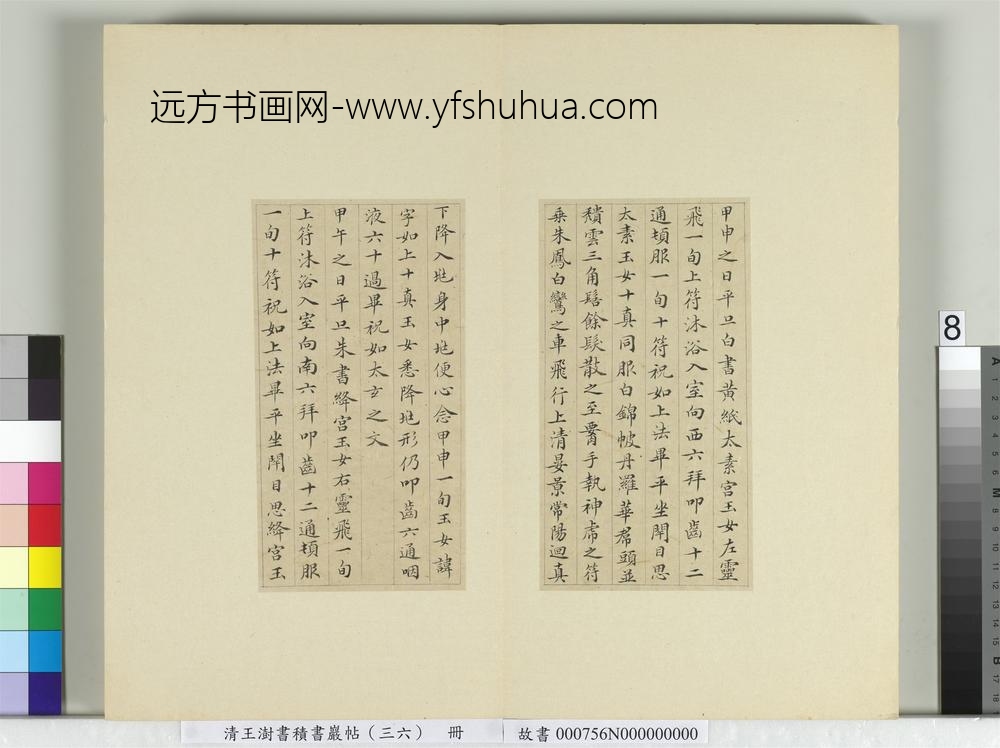 远方书画网-www.yfshuhua.com
甲申之日平旦白書黃紙太素宮玉女左靈
飛一旬上符沐浴入室向西六拜叩齒十二
通頓服一旬十符祝如上法畢平坐閉目思
太素玉女十真同服白錦帔丹羅華帬頭並
穨雲三角髻餘髮散之至腰手執神虎之符
乗朱鳳白鸞之車飛行上清晏景常陽迴真
下降入地身中地便心念甲申一旬玉女諱
字如上十真玉女悉降地形仍叩齒六通咽
液六十過畢祝如太玄之文
甲午之日平旦朱書絳宮玉女右靈飛一旬
上符沐浴入室向南六拜叩齒十二通頓服
一旬十符祝如上法畢平坐閉目思絳宮玉
清王澍書積書巖帖（三六） 冊
故書 000756N000000000
8